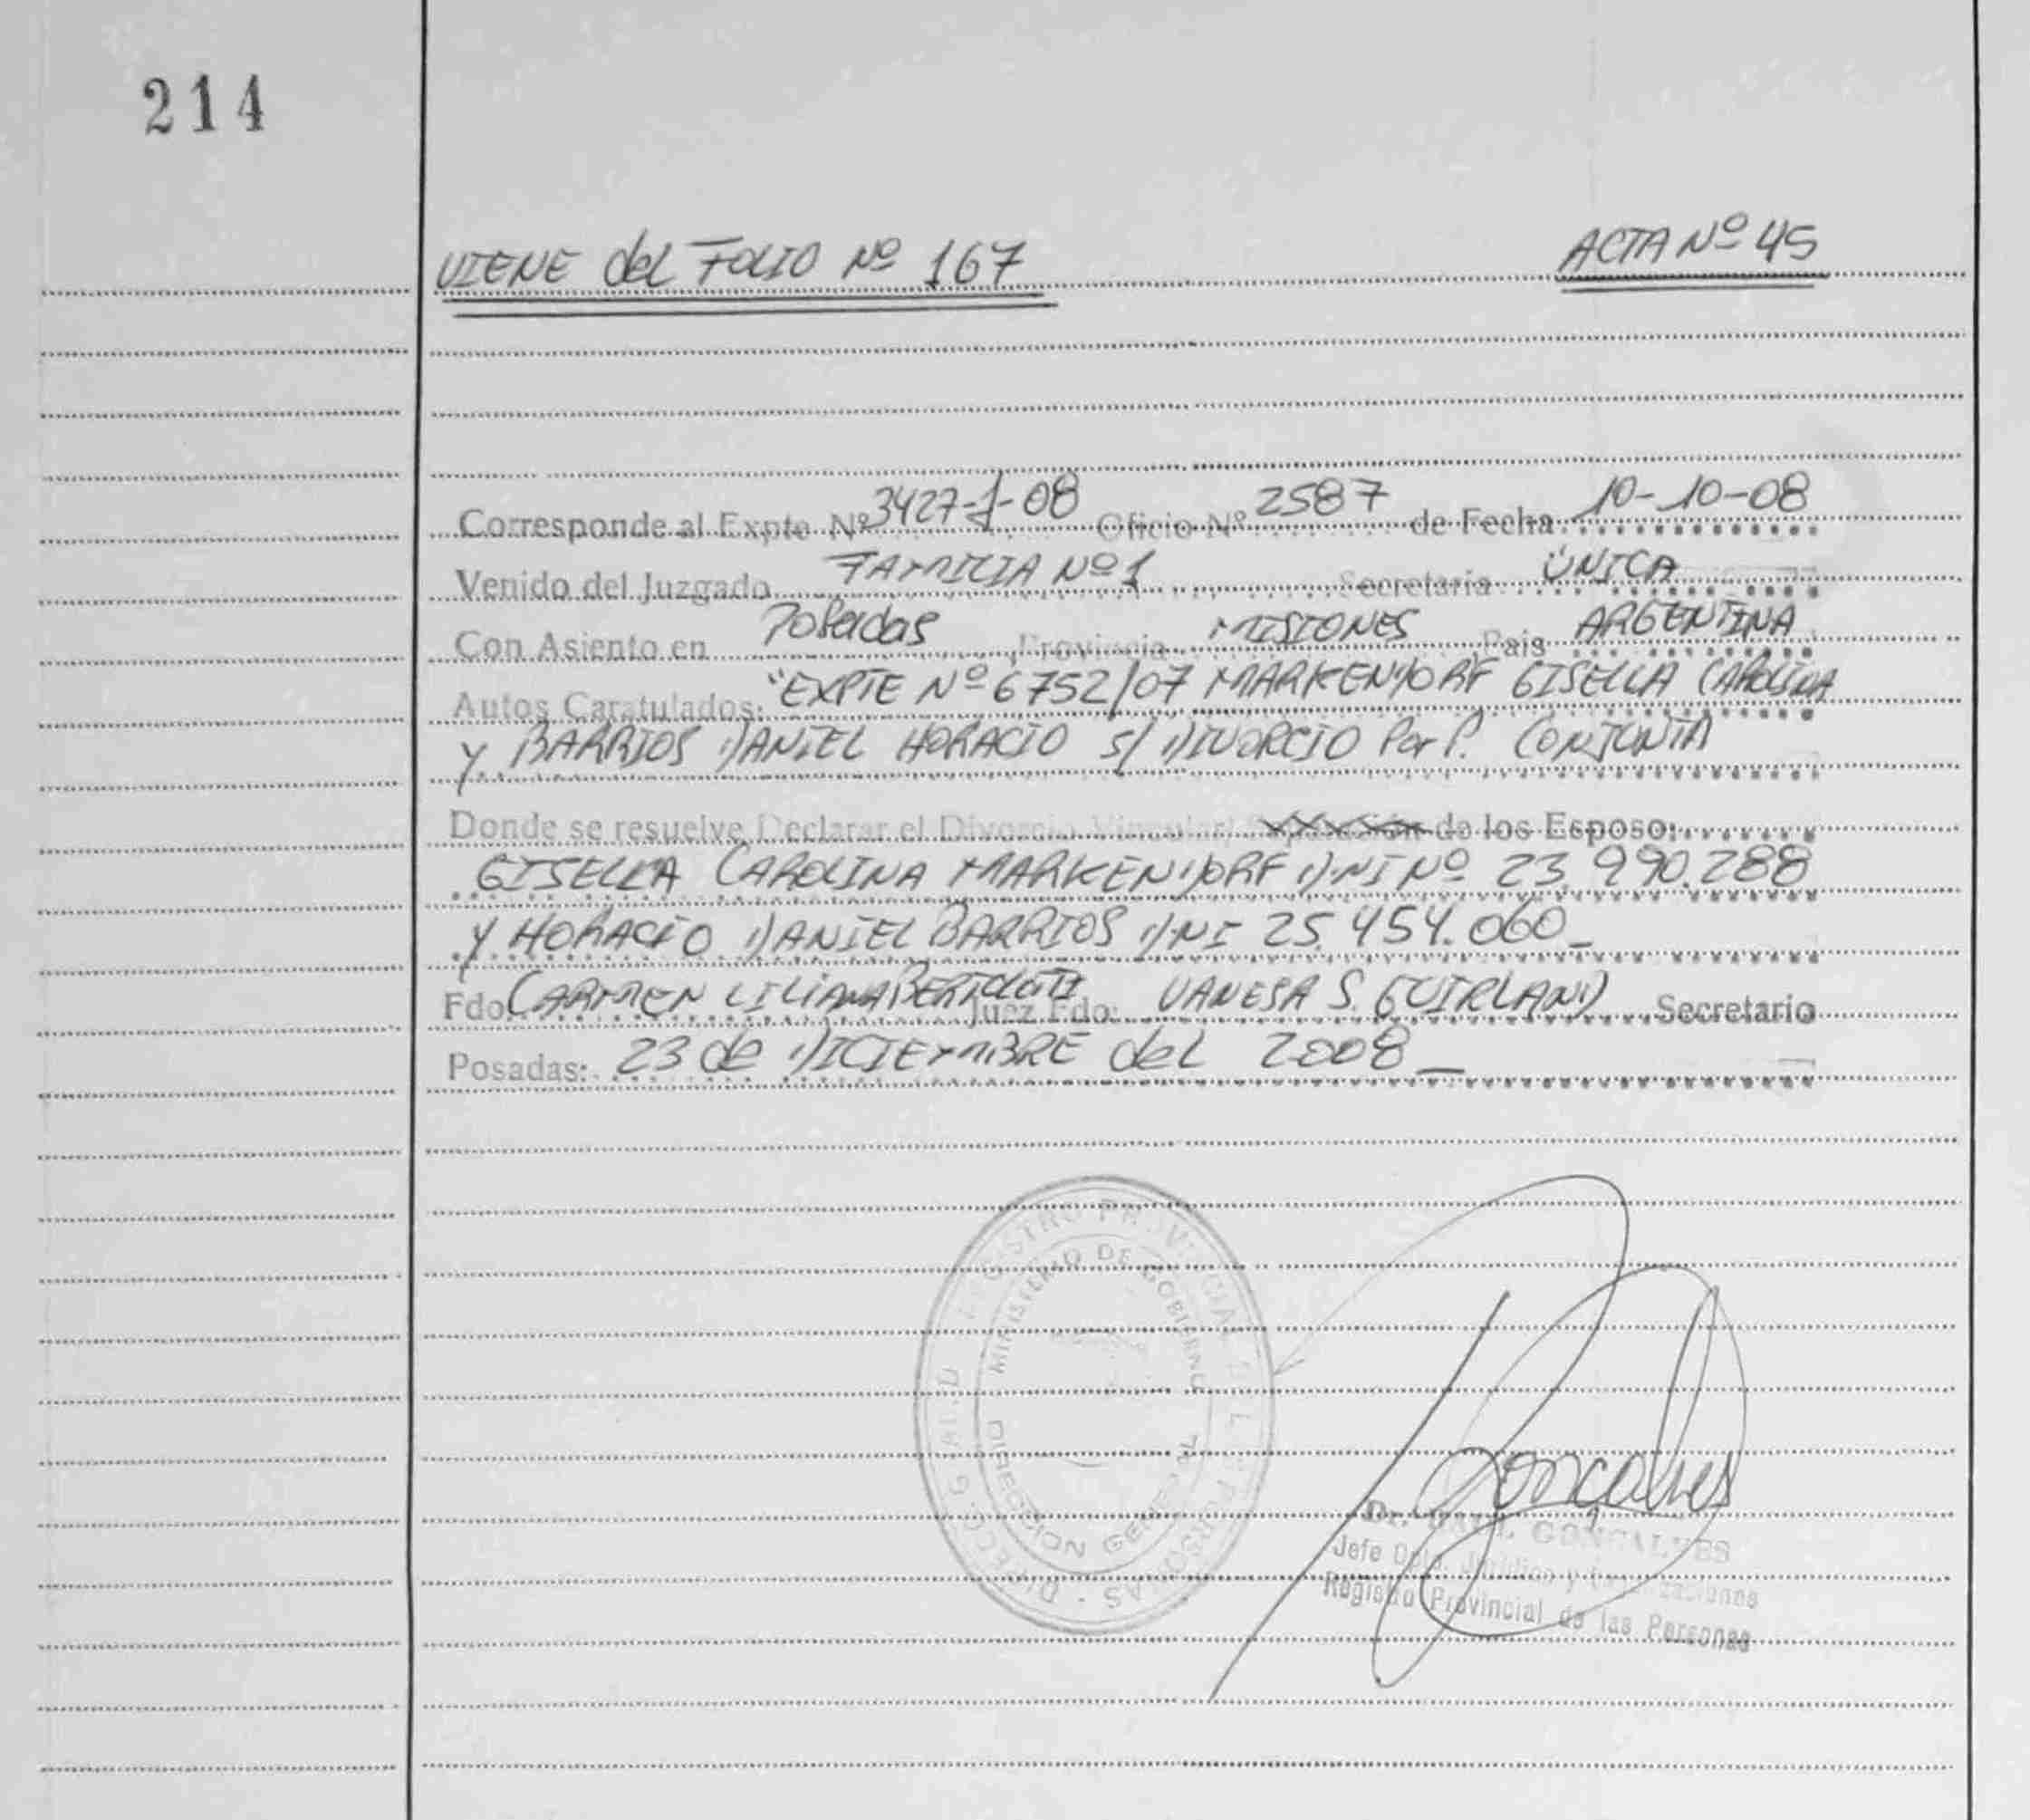 214
VIENE del FOLIO Nº 167 ACTA Nº 45
Corresponde al Expte Nº 3427-J-08 Oficio Nº 2587 de Fecha 10-10-08
Venido del Juzgado FAMILIA Nº 1 Secretaria ÚNICA
Con Asiento en Posadas Provincia MISIONES Pais ARGENTINA
Autos Caratulados: "EXPTE Nº 6752/07 MARKENDORF GISELLA CAROLINA
y BARRIOS DANIEL HORACIO S/ DIVORCIO Por P. CONJUNTA
Donde se resuelve Declarar el Divorcio Vincular/ de los Esposo:
GISELLA CAROLINA MARKENDORF D.NI Nº 23.990.288
y HORACIO DANIEL BARRIOS D.NI 25.454.060_
Fdo: CARMEN LILIANA Juez Fdo: VANESA S. GUIRLAND Secretario
Posadas: 23 de DICIEMBRE del 2008_
REGISTRO PROVINCIAL DE LAS PERSONAS - DIRECC. GRAL.
MINISTERIO DE GOBIERNO
DIRECCION GENERAL
Gonçalves
Dr. GONÇALVES
Jefe Dpto. Jurídico y
Registro Provincial de las Personas